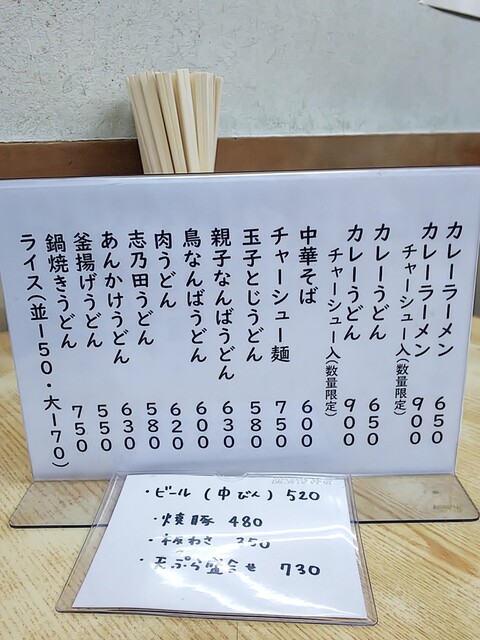 カレーラーメン 650
カレーラーメン 900
チャーシュー入(数量限定)
カレーうどん 650
カレーうどん 900
チャーシュー入(数量限定)
中華そば 600
チャーシュー麺 750
玉子とじうどん 580
親子なんばうどん 630
鳥なんばうどん 600
肉うどん 620
志乃田うどん 580
あんかけうどん 630
釜揚げうどん 550
鍋焼きうどん 750
ライス(並150・大170)
・ビール (中びん) 520
・焼豚 480
・板わさ 350
・天ぷら盛合せ 730